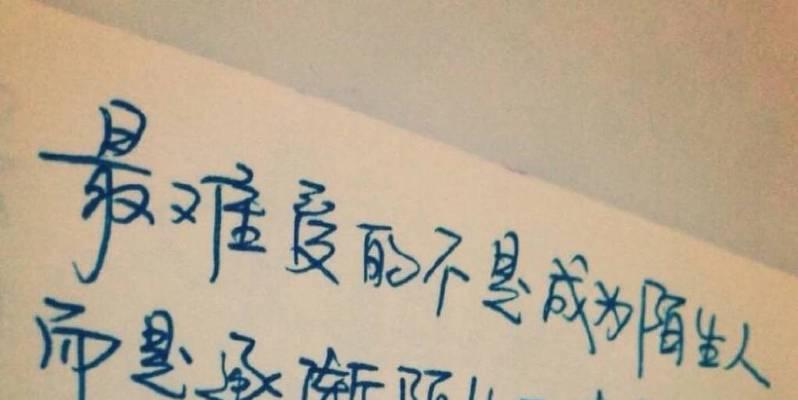 最难受的不是成为陌生人
而是逐渐陌